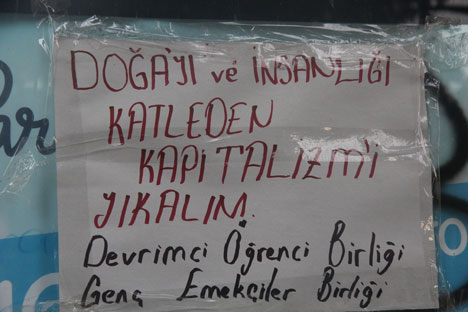 DOĞA'YI ve İNSANLIĞI
KATLEDEN
KAPİTALİZM'İ
YIKALIM.
Devrimci Öğrenci Birliği
Genç Emekçiler Birliği